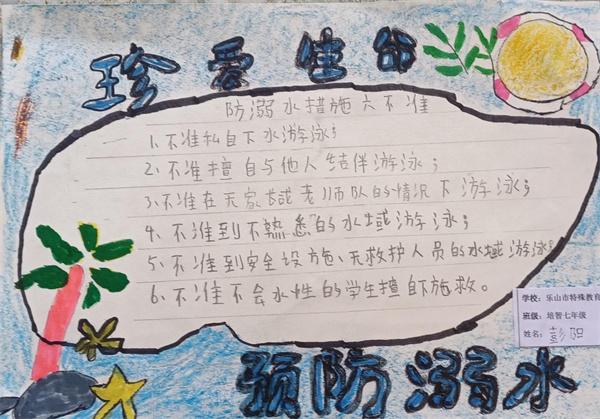 珍爱生命
防溺水措施六不准
1、不准私自下水游泳；
2、不准擅自与他人结伴游泳；
3、不准在无家长或老师队的情况下游泳；
4、不准到不熟悉的水域游泳；
5、不准到安全设施、无救护人员的水域游泳；
6、不准不会水性的学生擅自下施救。
学校：乐山市特殊教育
班级：培智七年级
姓名：彭
预防溺水